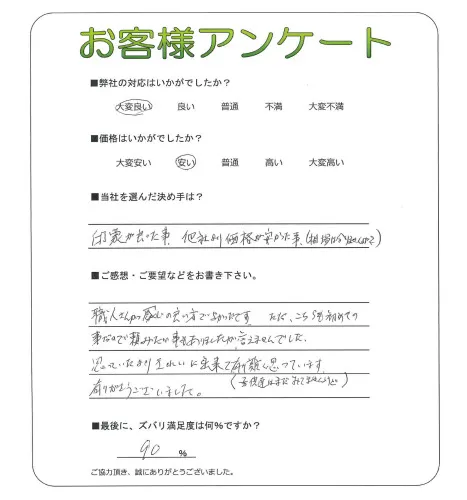 お客様アンケート
■弊社の対応はいかがでしたか？
大変良い 良い 普通 不満 大変不満
■価格はいかがでしたか？
大変安い 安い 普通 高い 大変高い
■当社を選んだ決め手は？
印象が良かった事 他社より価格が安かった事
■ご感想・ご要望などをお書き下さい。
職人さんも感じの良い方でよかったです ただ、こちらも初めての
事なので頼みたい事もありましたが言えませんでした。
思っていたよりきれいに出来て有り難く思っています。
有りがとうございました。
■最後に、ズバリ満足度は何％ですか？
90 ％
ご協力頂き、誠にありがとうございました。